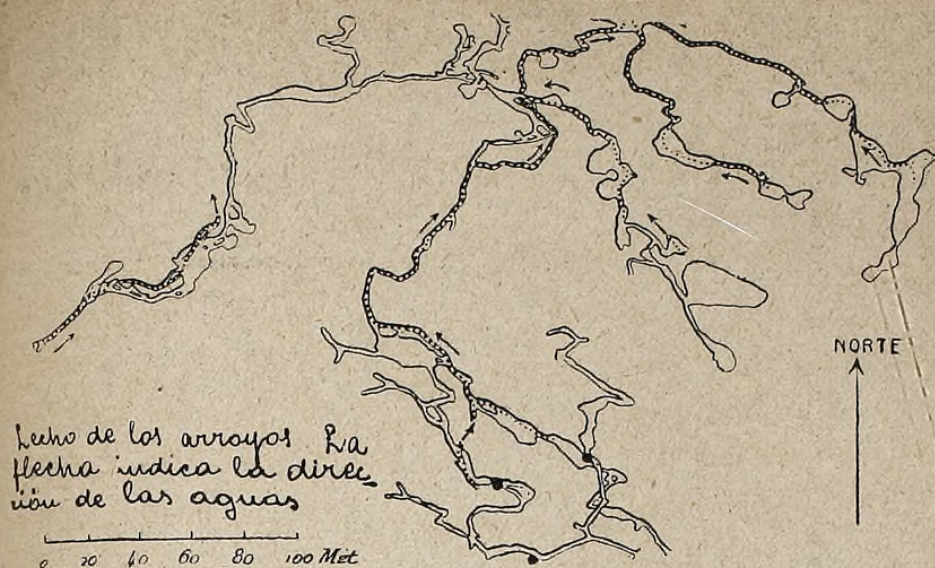 NORTE
Lecho de los arroyos La
flecha indica la direc_
ción de las aguas
0 20 40 60 80 100 Met